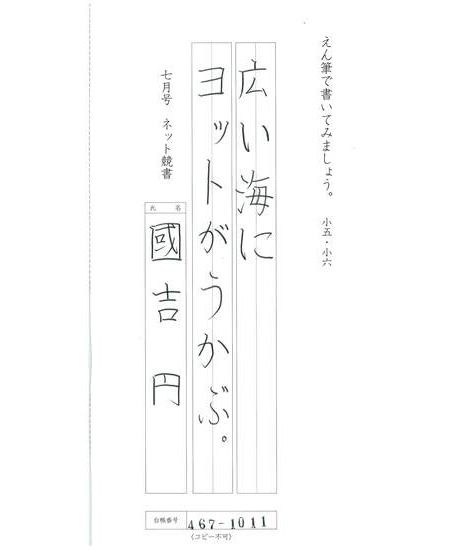 えん筆で書いてみましょう。 小五・小六
広い海に
ヨットがうかぶ。
七月号 ネット競書
氏名
國吉円
台帳番号 467-1011
(コピー不可)